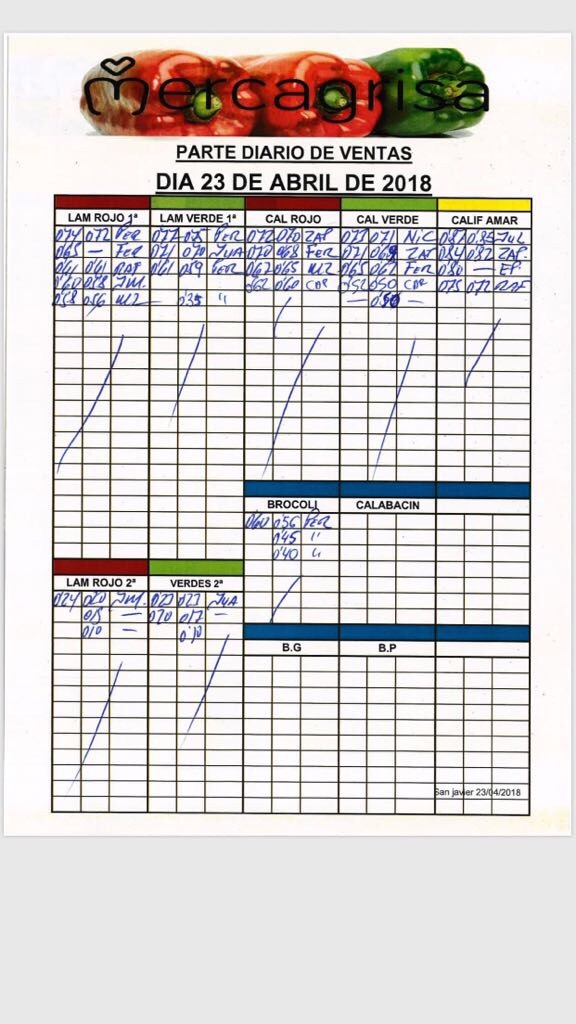 mercagrisa
PARTE DIARIO DE VENTAS
DIA 23 DE ABRIL DE 2018
LAM ROJO 1ª LAM VERDE 1ª CAL ROJO CAL VERDE CALIF AMAR
0'74 0'72 FER 0'77 0'75 FER 0'72 0'70 ZAP 0'77 0'71 NIC 0'87 0'85 JUL
0'65 — FER 0'71 0'70 JUA 0'70 0'68 FER 0'71 ZAP 0'84 0'82 ZAP
0'61 0'61 0'61 0'59 FER 0'67 0'65 MZ 0'65 FER 0'80 — EP
0'60 0'58 JM. 0'62 0'60 CDR 0'52 0'50 CDR 0'75
0'58 0'56 MZ 0'35 " — —
BROCOLI CALABACIN
0'60 0'56 FER
0'45 "
0'40 "
LAM ROJO 2ª VERDES 2ª
0'24 0'20 JM. 0'23 JUA
0'15 — 0'20 0'17 —
0'10 — 0'10
B.G B.P
San javier 23/04/2018